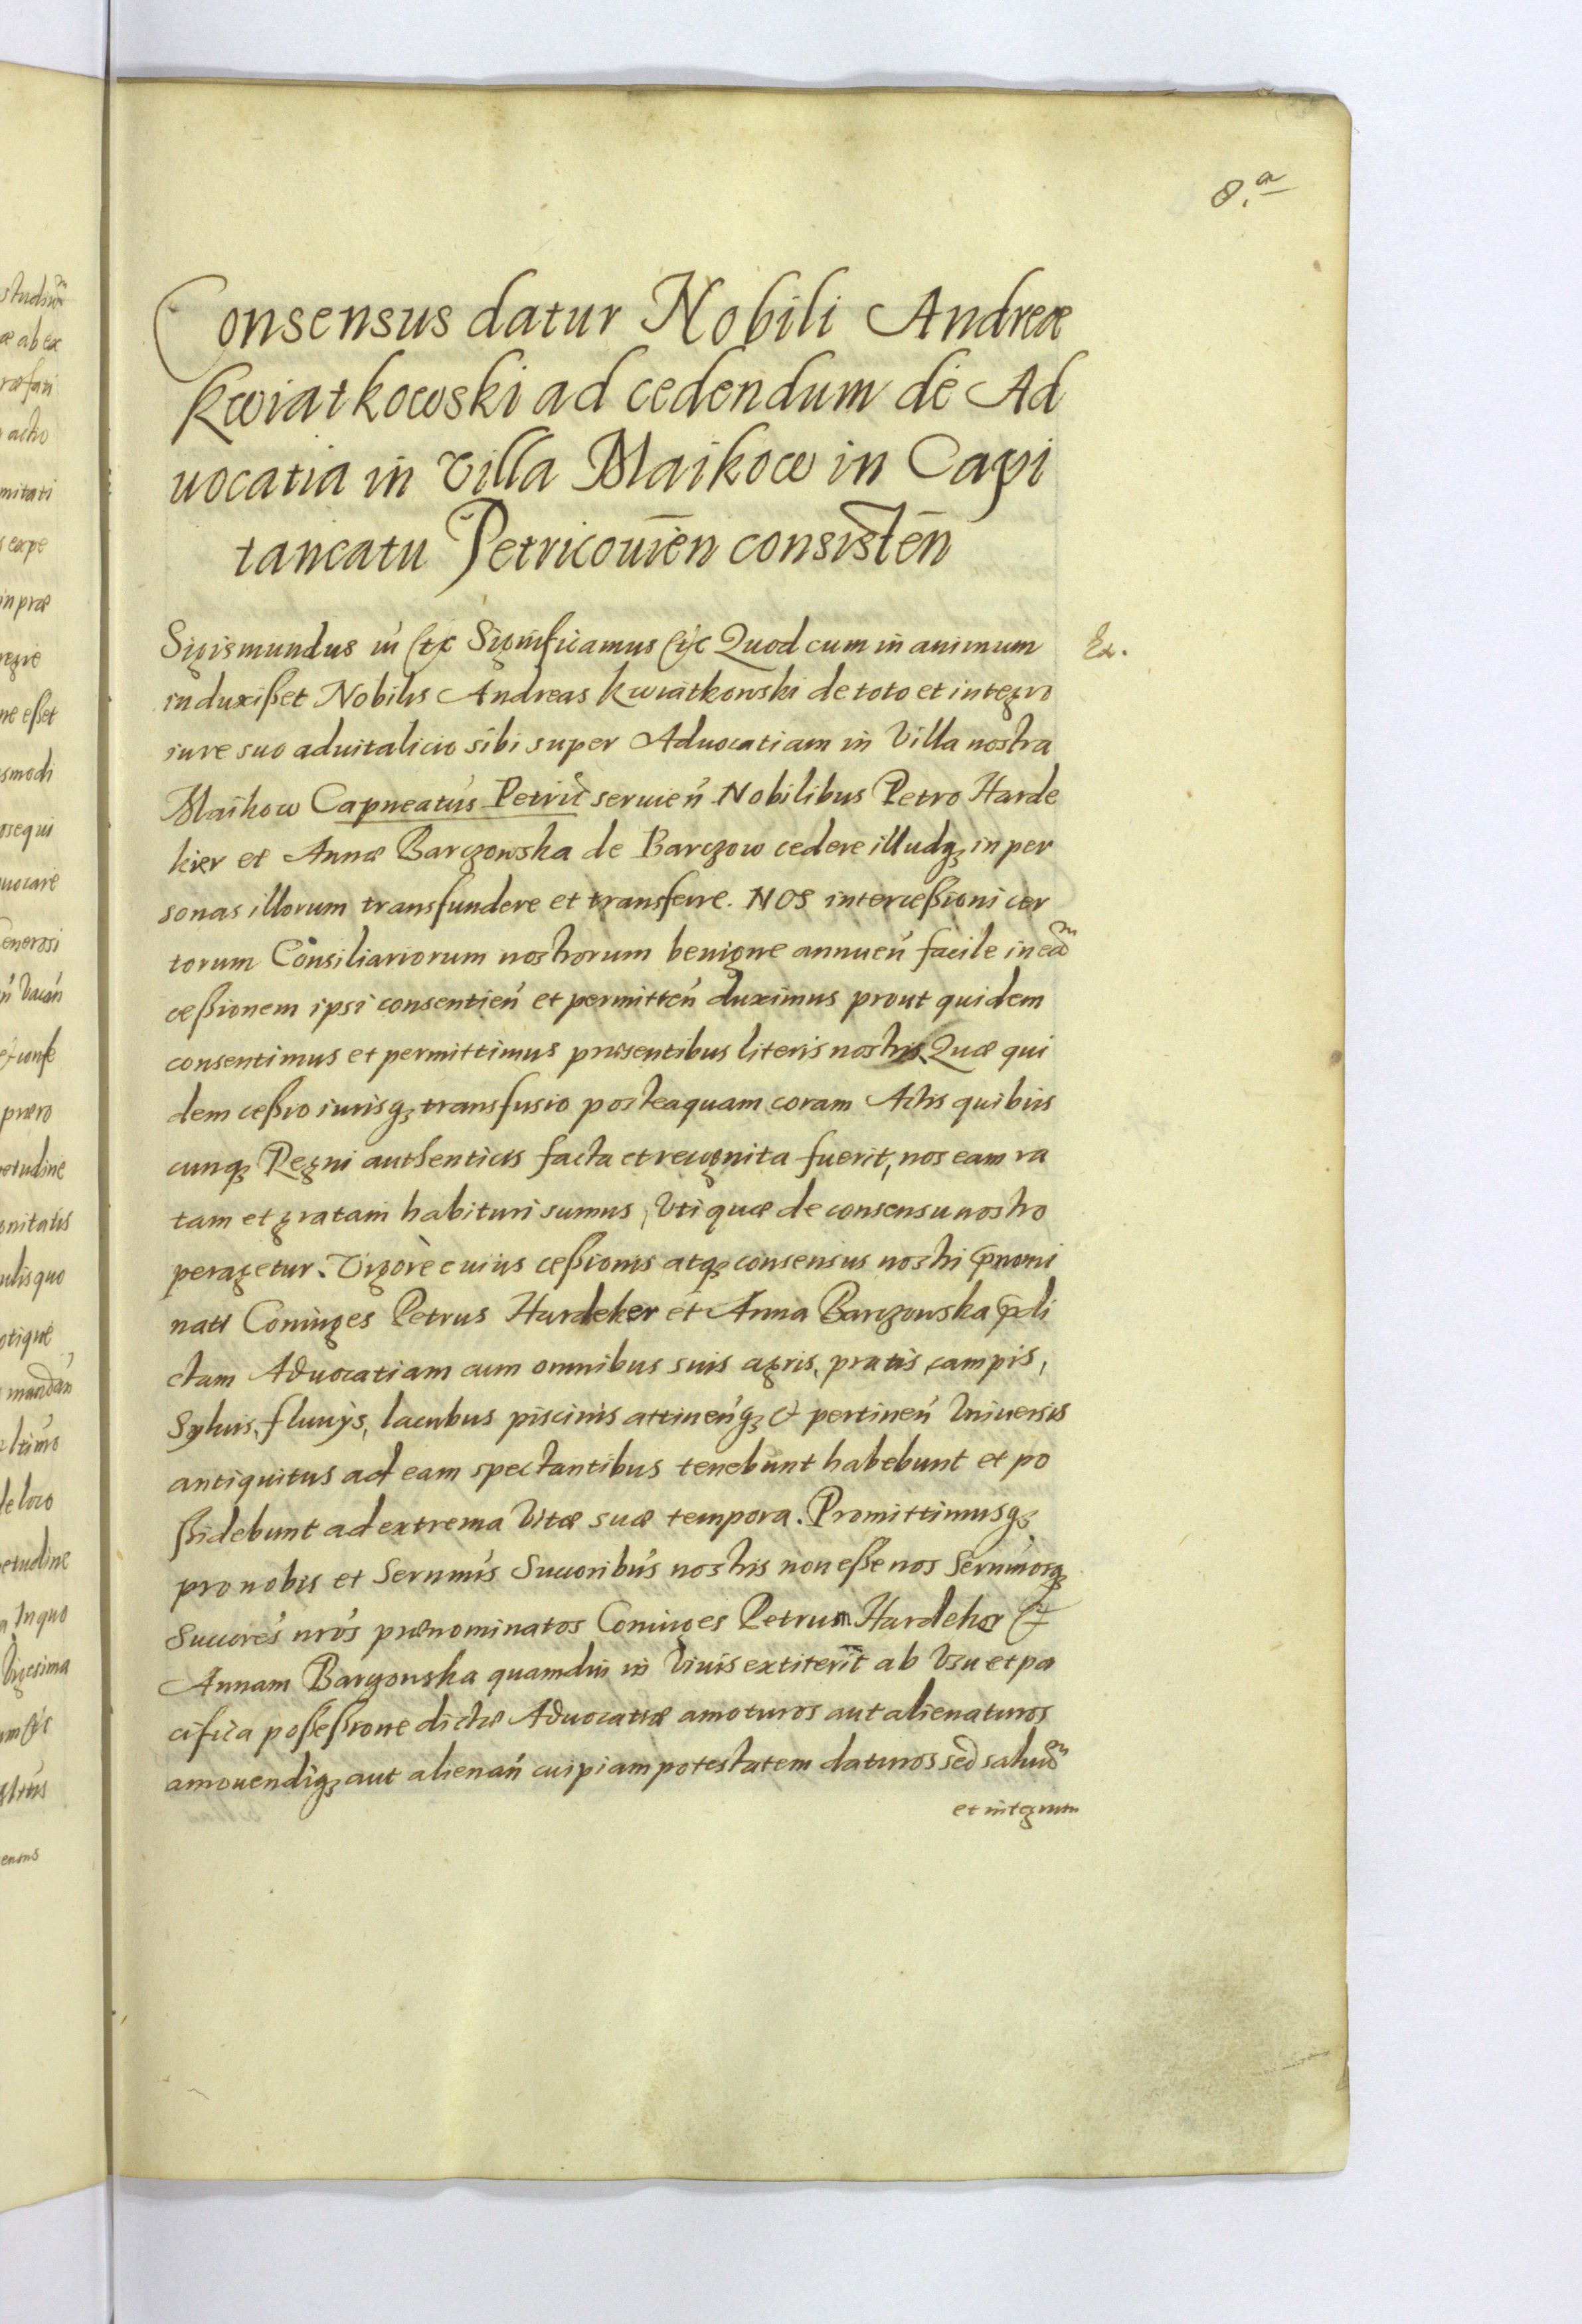 8.a
Consensus datur Nobili Andreæ
Kwiatkowski ad cedendum de Ad
uocatia in Villa Maikow in Capi
taneatu Petricouien̄ consisten̄
Sigismundus iii &c Significamus &c Quod cum in animum
Ex.
induxißet Nobilis Andreas Kwiatkowski de toto et integro
iure suo aduitalicio sibi super Aduocatiam in Villa nostra
Maikow Capneatus Petric seruien̄ Nobilibus Petro Harde
kier et Annæ Barczowska de Barczow cedere illudqȝ in per
sonas illorum transfundere et transferre. NOS interceßioni cer
torum Consiliariorum nostrorum benigne annuen̄ facile in eãm
ceßionem ipsi consentien̄ et permitten̄ duximus prout quidem
consentimus et permittimus præsentibus literis nostris Quæ qui
dem ceßio iurisqȝ transfusio posteaquam coram Actis quibus
cunqȝ Regni authenticis facta et recognita fuerit, nos eam ra
tam et gratam habituri sumus, Vti quæ de consensu nostro
peragetur. Vigore cuius ceßionis atqȝ consensus nostri p̄nomi
nati Coniuges Petrus Hardeker et Anna Barczowska p̄di
ctam Aduocatiam cum omnibus suis agris, pratis, campis,
Syluis, fluuijs, lacubus piscinis attinen̄qȝ & pertinen̄ Vniuersis
antiquitus ad eam spectantibus tenebunt habebunt et po
ßidebunt ad extrema Vitæ suæ tempora. Promittimusqȝ
pro nobis et Sernmis Succoribus nostris non eße nos Sernmosqȝ
Succores nros prænominatos Coniuges Petrum Hardeker &
Annam Barczowska quamdiu in Viuis extiterit ab Vsu et pa
cifica poßeßione dictæ Aduocatiæ amoturos aut alienaturos
amouendiqȝ aut alienan̄ cuipiam potestatem daturos sed saluum
et integrum